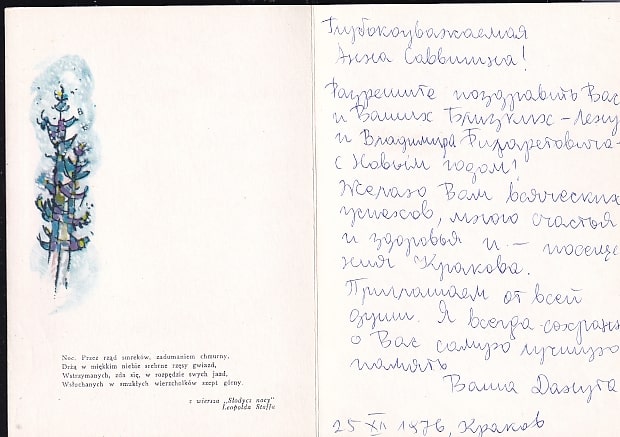 Noc. Przez rząd smreków, zadumaniem chmurny,
Drżą w miękkim niebie srebrne rzęsy gwiazd,
Wstrzymanych, zda się, w rozpędzie swych jazd,
Wsłuchanych w smukłych wierzchołków szept górny.
z wiersza „Słodycz nocy"
Leopolda Staffa
Глубокоуважаемая
Анна Саввишна!
Разрешите поздравить Вас
и Ваших Близких – Лену
и Владимира
с Новым годом!
Желаю Вам всяческих
успехов, много счастья
и здоровья и – посеще
ния Кракова.
Приглашаем от всей
души. Я всегда сохраню
о Вас самую лучшую
память
Ваша Данута
25 XII 1976, Краков